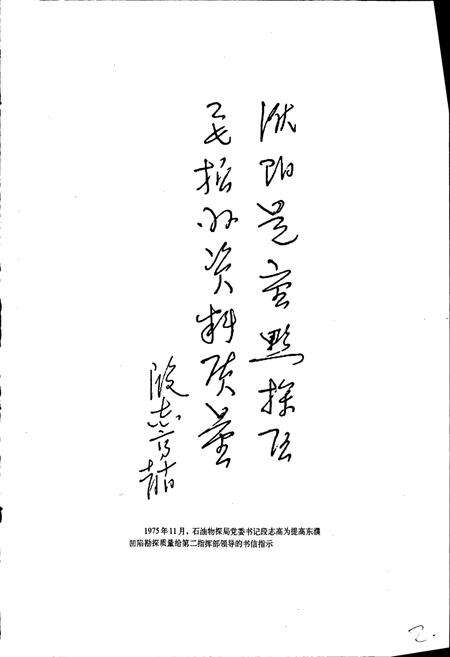 濮阳是重点探区
要搞好资料质量
段志高
1975年11月，石油物探局党委书记段志高为提高东濮
凹陷勘探质量给第二指挥部领导的书信指示
2.